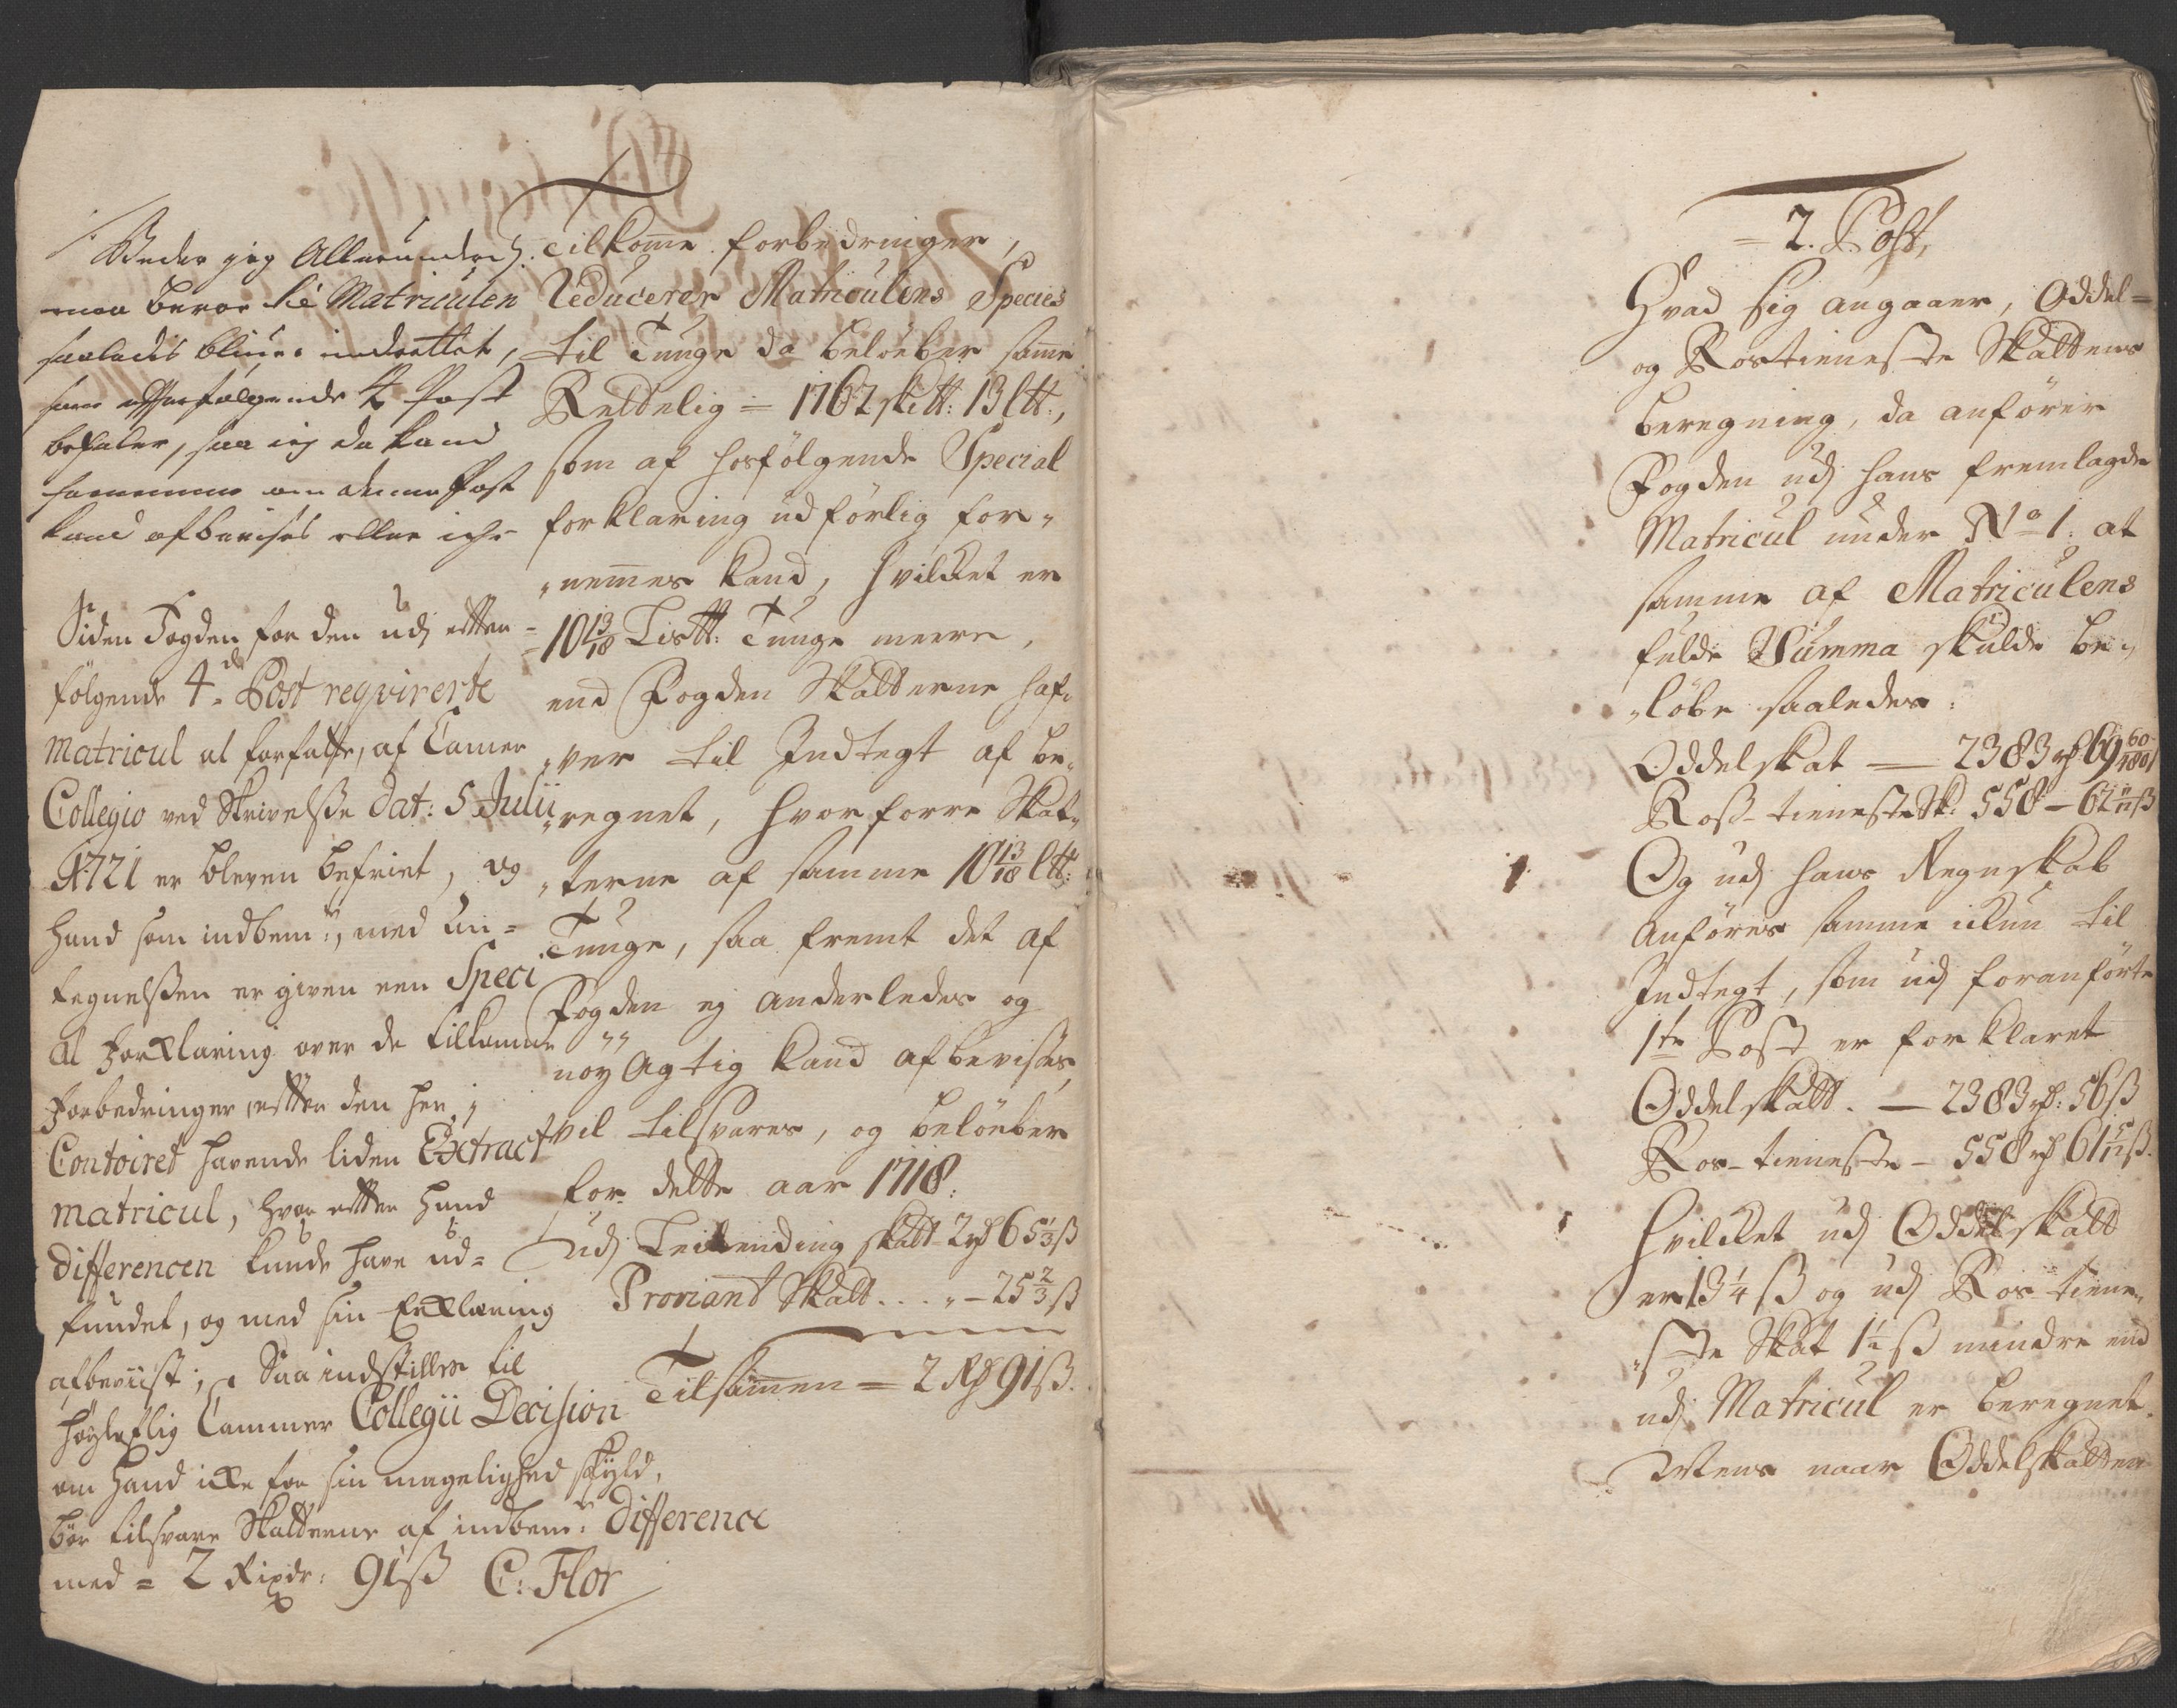 Beder jeg Allerunderd:
maa bevare Matriculen
saaledis bliver indrettet,
som efterfølgende 4 Post
befaler, saa ieg da kand
fornemme om denne Post
kand afbevises eller iche

Siden Fogden for den udj efter=
følgende 4de Post reqvirerte
Matricul at forfatte, af Camer
Collegio ved Skrivelse dat: 5 Julij
A. 1721 er bleven befriet, og
hand som indbem:te, med An=
tegnelsen er given een Speci
al Forklaring over de tilkomne
Forbedringer, efter den her i
Contoiret havende liden Extract
Matricul, hvor efter hand
Differencen kunde have ud=
fundet, og med sin Erklæring
afbeviist; Saa indstilles til
Høyløflig Cammer Collegii Decision
om hand icke for sin magelighed skyld,
bør tilsvare Skatterne af indbem:te Difference
med = 2 Rixdr: 91 ß C: Flor

Tilkomne forbedringer,
Reducerer Matriculens Species
til Tunge da beløeber samme
Rettelig = 1762 skt: 13 ltt:,
som af hosfølgende Special
forklaring udførlig for„
„nemmes kand, hvilket er
10 13/18 Listt: Tunge meere,
end Fogden Skatterne haf„
„ver til Indtegt af be„
„regnet, hvorforre Skat„
„terne af samme 10 13/18 ltt:
Tunge, saa fremt det af
Fogden ej anderledes og
nøyagtig kand afbevises,
vil tilsvares, og beløeber
for dette aar 1718:
udj Leilending skatt 2 rd 65 1/3 ß
Proviant Skatt . . . „ – 25 2/3 ß
Tilsammen = 2 Rd 91 ß.

= 2. Post,
Hvad sig angaaer, Oddel=
og Rostieneste Skattens
beregning, da anfører
Fogden udj hans fremlagde
Matricul under No 1: at
samme af Matriculens
fulde Summa skulde be„
„løbe saaledes:
Oddelskat — 2383 rd 69 60/180
Ross-tieneste Sk: 558 – 62 11/12 ß
Og udj hans Regnskab
Anføres samme ickun til
Indtegt, som udj foranførte
1te Post er forklaret
Oddelskatt. — 2383 rd: 56 ß
Ros-tieneste – 558 rd 61 5/12 ß.
Hvilket udj Oddel skatt
er 13 1/4 ß og udj Ros-tiene„
„ste Skat 1 1/2 ß mindre end
udj Matricul er beregnet.
Mens naar Oddelskatten